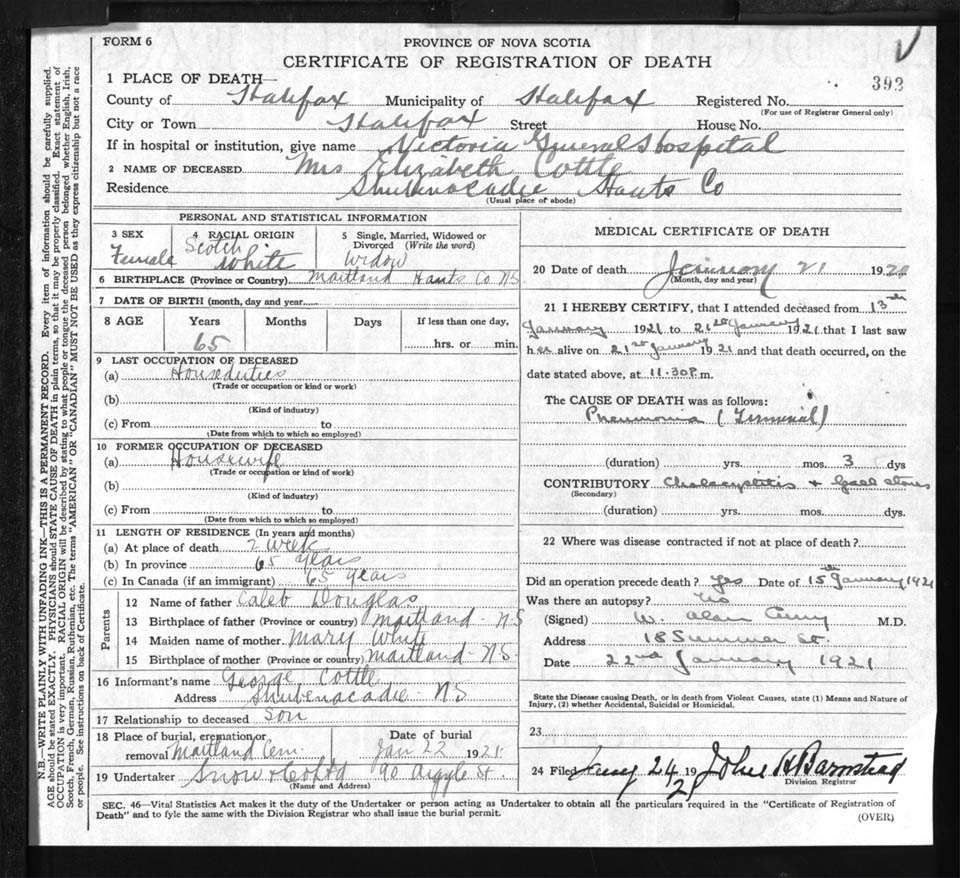 FORM 6
PROVINCE OF NOVA SCOTIA
CERTIFICATE OF REGISTRATION OF DEATH
393
1 PLACE OF DEATH—
County of Halifax Municipality of Halifax Registered No.
(For use of Registrar General only)
City or Town Halifax Street House No.
If in hospital or institution, give name Victoria General Hospital
2 NAME OF DECEASED Mrs Elizabeth Cottle
Residence Shubenacadie Hants Co
(Usual place of abode)
PERSONAL AND STATISTICAL INFORMATION
3 SEX 4 RACIAL ORIGIN 5 Single, Married, Widowed or
Divorced (Write the word)
Female Scotch White Widow
6 BIRTHPLACE (Province or Country) Maitland Hants Co NS
7 DATE OF BIRTH (month, day and year)
8 AGE Years Months Days If less than one day,
65 hrs. or min.
9 LAST OCCUPATION OF DECEASED
(a) Houseduties
(Trade or occupation or kind or work)
(b)
(Kind of industry)
(c) From to
(Date from which to which so employed)
10 FORMER OCCUPATION OF DECEASED
(a) Housewife
(Trade or occupation or kind of work)
(b)
(Kind of industry)
(c) From to
(Date from which to which so employed)
11 LENGTH OF RESIDENCE (In years and months)
(a) At place of death 2 week
(b) In province 65 years
(c) In Canada (if an immigrant) 65 years
Parents
12 Name of father Caleb Douglas
13 Birthplace of father (Province or country) Maitland - NS
14 Maiden name of mother Mary White
15 Birthplace of mother (Province or country) Maitland - NS.
16 Informant's name George Cottle
Address Shubenacadie - NS
17 Relationship to deceased Son
18 Place of burial, cremation or Date of burial
removal Maitland Cem. Jan 22 1921
19 Undertaker Snow & Co Ltd 90 Argyle St.
(Name and Address)
MEDICAL CERTIFICATE OF DEATH
20 Date of death January 21 192
(Month, day and year)
21 I HEREBY CERTIFY, that I attended deceased from 13th
January 1921 to 21st January 1921 that I last saw
her alive on 21st January 1921 and that death occurred, on the
date stated above, at 11.30 P.m.
The CAUSE OF DEATH was as follows:
Pneumonia (Terminal)
(duration) yrs. mos. 3 dys
CONTRIBUTORY Cholecystitis + Gall stones
(Secondary)
(duration) yrs. mos. dys.
22 Where was disease contracted if not at place of death?
Did an operation precede death? Yes Date of 15th January 1921
Was there an autopsy? No
(Signed) W. Alan Curry M.D.
Address 18 Summer St.
Date 22nd January 1921
State the Disease causing Death, or in death from Violent Causes, state (1) Means and Nature of
Injury, (2) whether Accidental, Suicidal or Homicidal.
23
24 Filed Jany 24 1921 John H Barnstead
Division Registrar
SEC. 46—Vital Statistics Act makes it the duty of the Undertaker or person acting as Undertaker to obtain all the particulars required in the "Certificate of Registration of
Death" and to fyle the same with the Division Registrar who shall issue the burial permit.
(OVER)
N.B.—WRITE PLAINLY WITH UNFADING INK—THIS IS A PERMANENT RECORD. Every item of information should be carefully supplied.
AGE should be stated EXACTLY. PHYSICIANS should STATE CAUSE OF DEATH in plain terms, so that it may be properly classified. Exact statement of
OCCUPATION is very important. RACIAL ORIGIN will be described by stating to what people or tongue the deceased person belonged whether English, Irish,
Scotch, French, German, Russian, Ruthenian, etc. The terms "AMERICAN" OR "CANADIAN" MUST NOT BE USED as they express citizenship but not a race
or people. See instructions on back of Certificate.